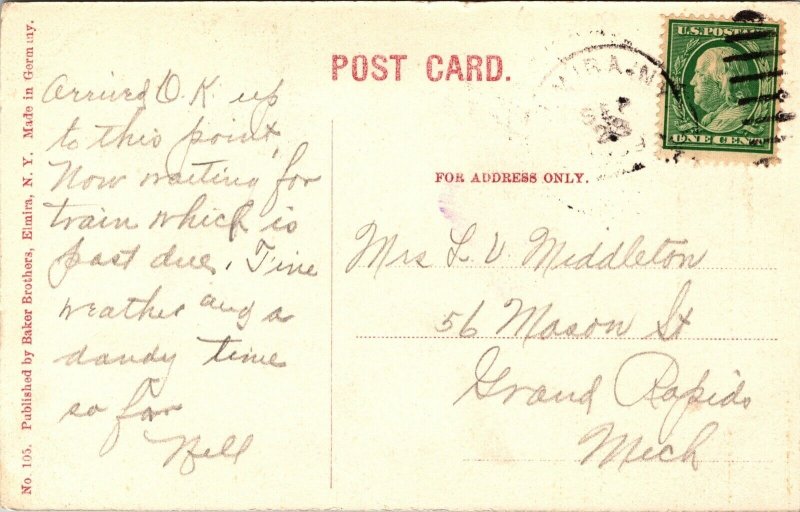 No. 105. Published by Baker Brothers, Elmira, N. Y. Made in Germany.
POST CARD.
FOR ADDRESS ONLY.
U.S. POSTAGE
ONE CENT
Arrived O.K. up
to this point,
Now waiting for
train which is
past due. Fine
weather and a
dandy time
so far
Nell
Mrs L. V. Middleton
56 Mason St
Grand Rapids
Mich